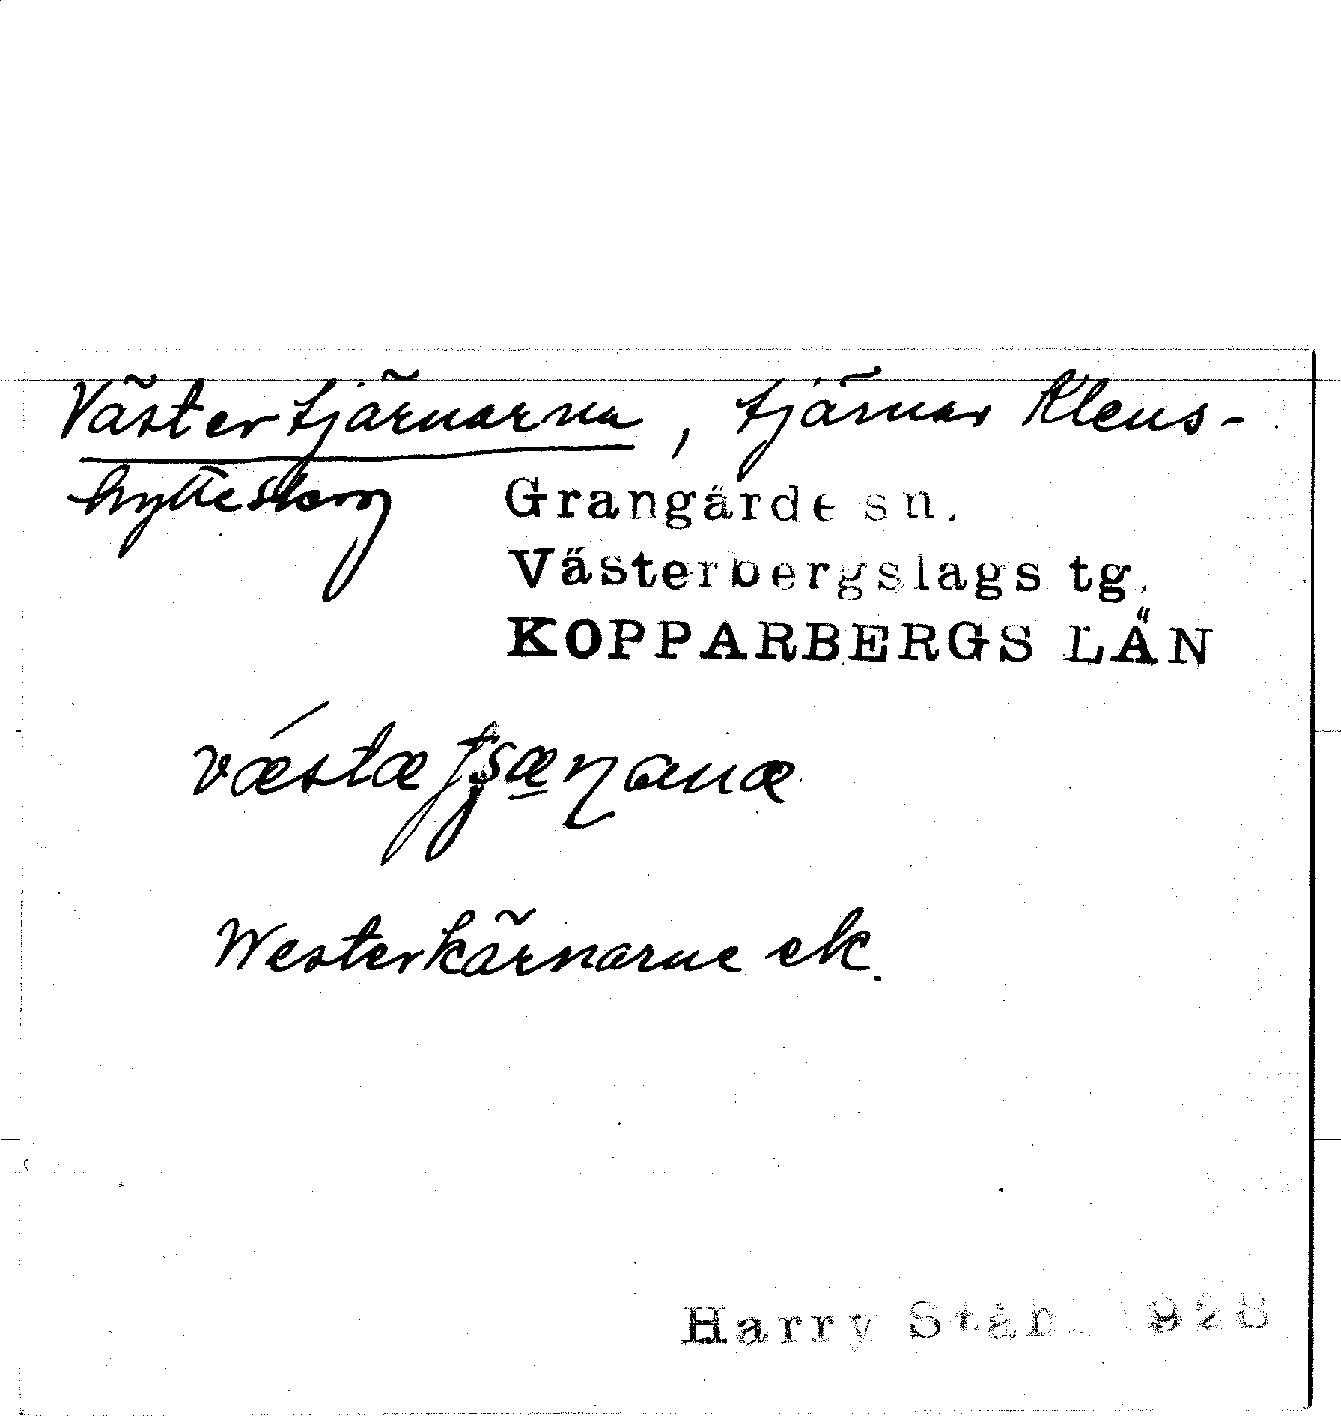 Västertjärnarna, tjärnar Klens-
hytteskog
Grangärde sn.
Västerbergslags tg.
KOPPARBERGS LÄN
Westerkärnarne ek.
Harry Ståhl 1928